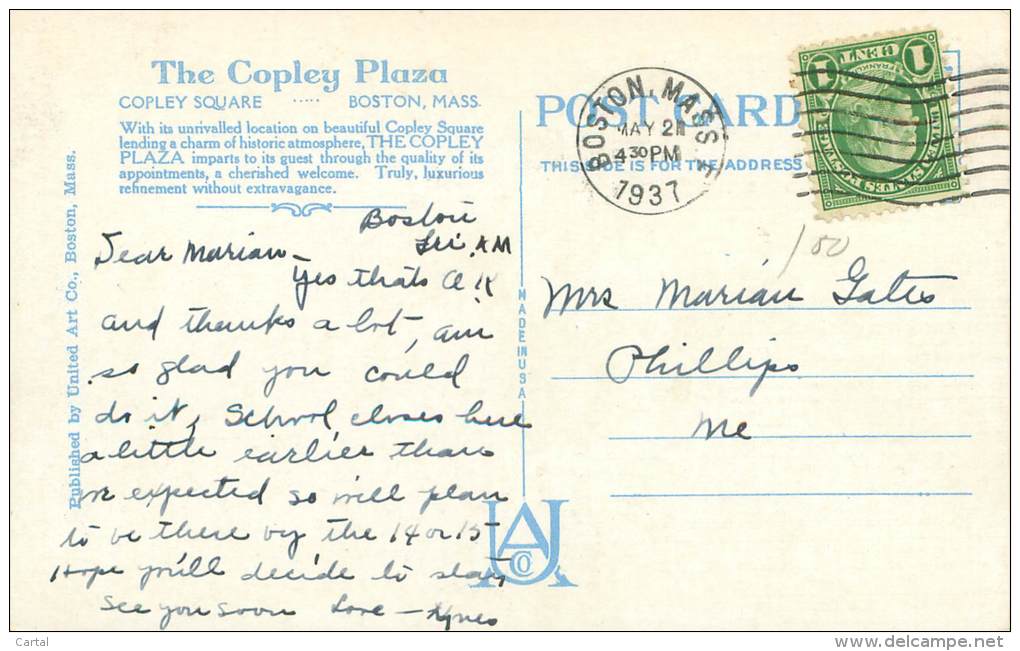 The Copley Plaza
COPLEY SQUARE ..... BOSTON, MASS.
With its unrivalled location on beautiful Copley Square
lending a charm of historic atmosphere, THE COPLEY
PLAZA imparts to its guest through the quality of its
appointments, a cherished welcome. Truly, luxurious
refinement without extravagance.
Boston
Fri. AM
Dear Marian—
Yes thats O.K
and thanks a lot, am
so glad you could
do it, School closes here
a little earlier than
we expected so will plan
to be there by the 14 or 15—
Hope you'll decide to stay
See you soon Love —
Published by United Art Co., Boston, Mass.
MADE IN USA
UACO
POST CARD
THIS SIDE IS FOR THE ADDRESS
BOSTON, MASS.
MAY 2
4 30 PM
1937
1 CENT 1
FRANKLIN
UNITED STATES POSTAGE
1 00
Mrs Marian Gates
Phillips
Me
Cartal
www.delcampe.net